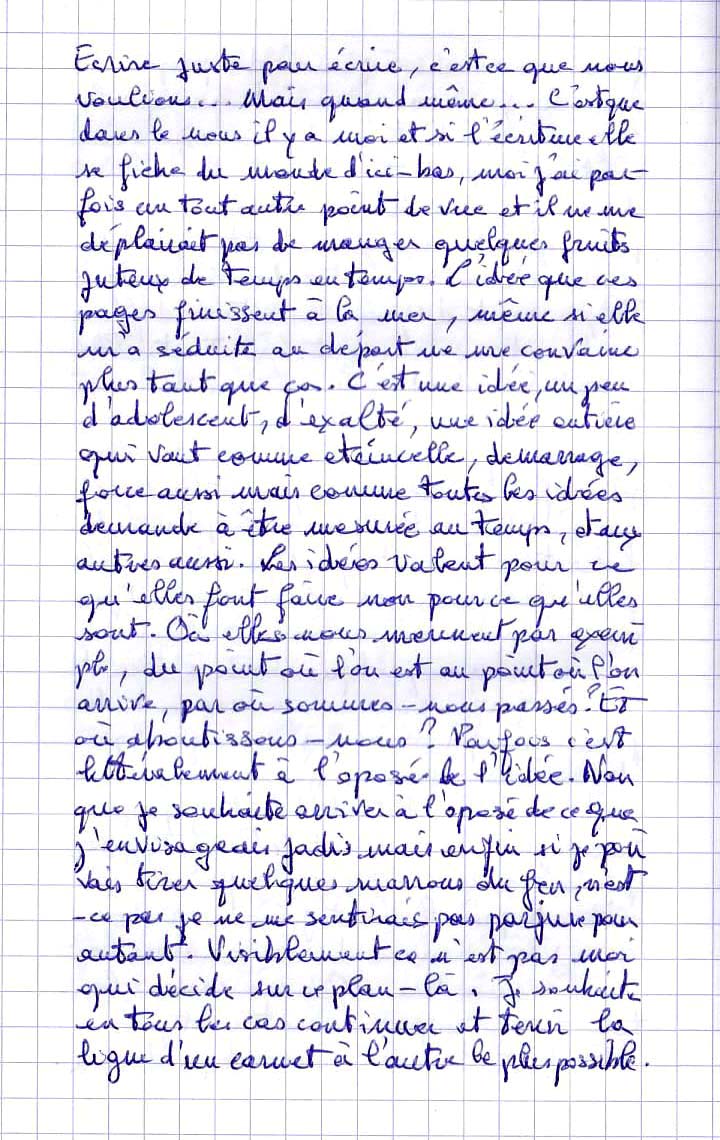 Ecrire juste pour écrire, c'est ce que nous
voulions... Mais quand même... C'est que
dans le nous il y a moi et si l'écriture elle
se fiche du monde d'ici-bas, moi j'ai par-
fois un tout autre point de vue et il ne me
déplairait pas de manger quelques fruits
juteux de temps en temps. L'idée que ces
pages finissent à la mer, même si elle
m'a séduite au départ ne me convainc
plus tant que ça. C'est une idée, un peu
d'adolescent, d'exalté, une idée entière
qui vaut comme eteincelle, demarrage,
force aussi mais comme toutes les idées
demande à être mesurée au temps, et aux
autres aussi. Les idées valent pour ce
qu'elles font faire non pour ce qu'elles
sont. Où elles nous mènent par exem
ple, du point où l'on est au point où l'on
arrive, par où sommes-nous passés? Et
où aboutissons-nous? Parfois c'est
littéralement à l'oposé de l'idée. Non
que je souhaite arriver à l'oposé de ce que
j'envisageais jadis mais enfin si je pou
vais tirer quelques marrons du feu, n'est
-ce pas je ne me sentirais pas parjure pour
autant. Visiblement ce n'est pas moi
qui décide sur ce plan-là. Je souhaite
en tous les cas continuer et tenir la
ligne d'un carnet à l'autre le plus possible.